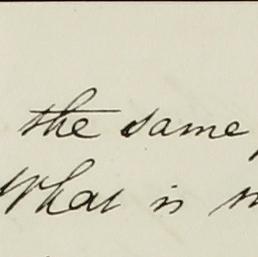 the same
What is